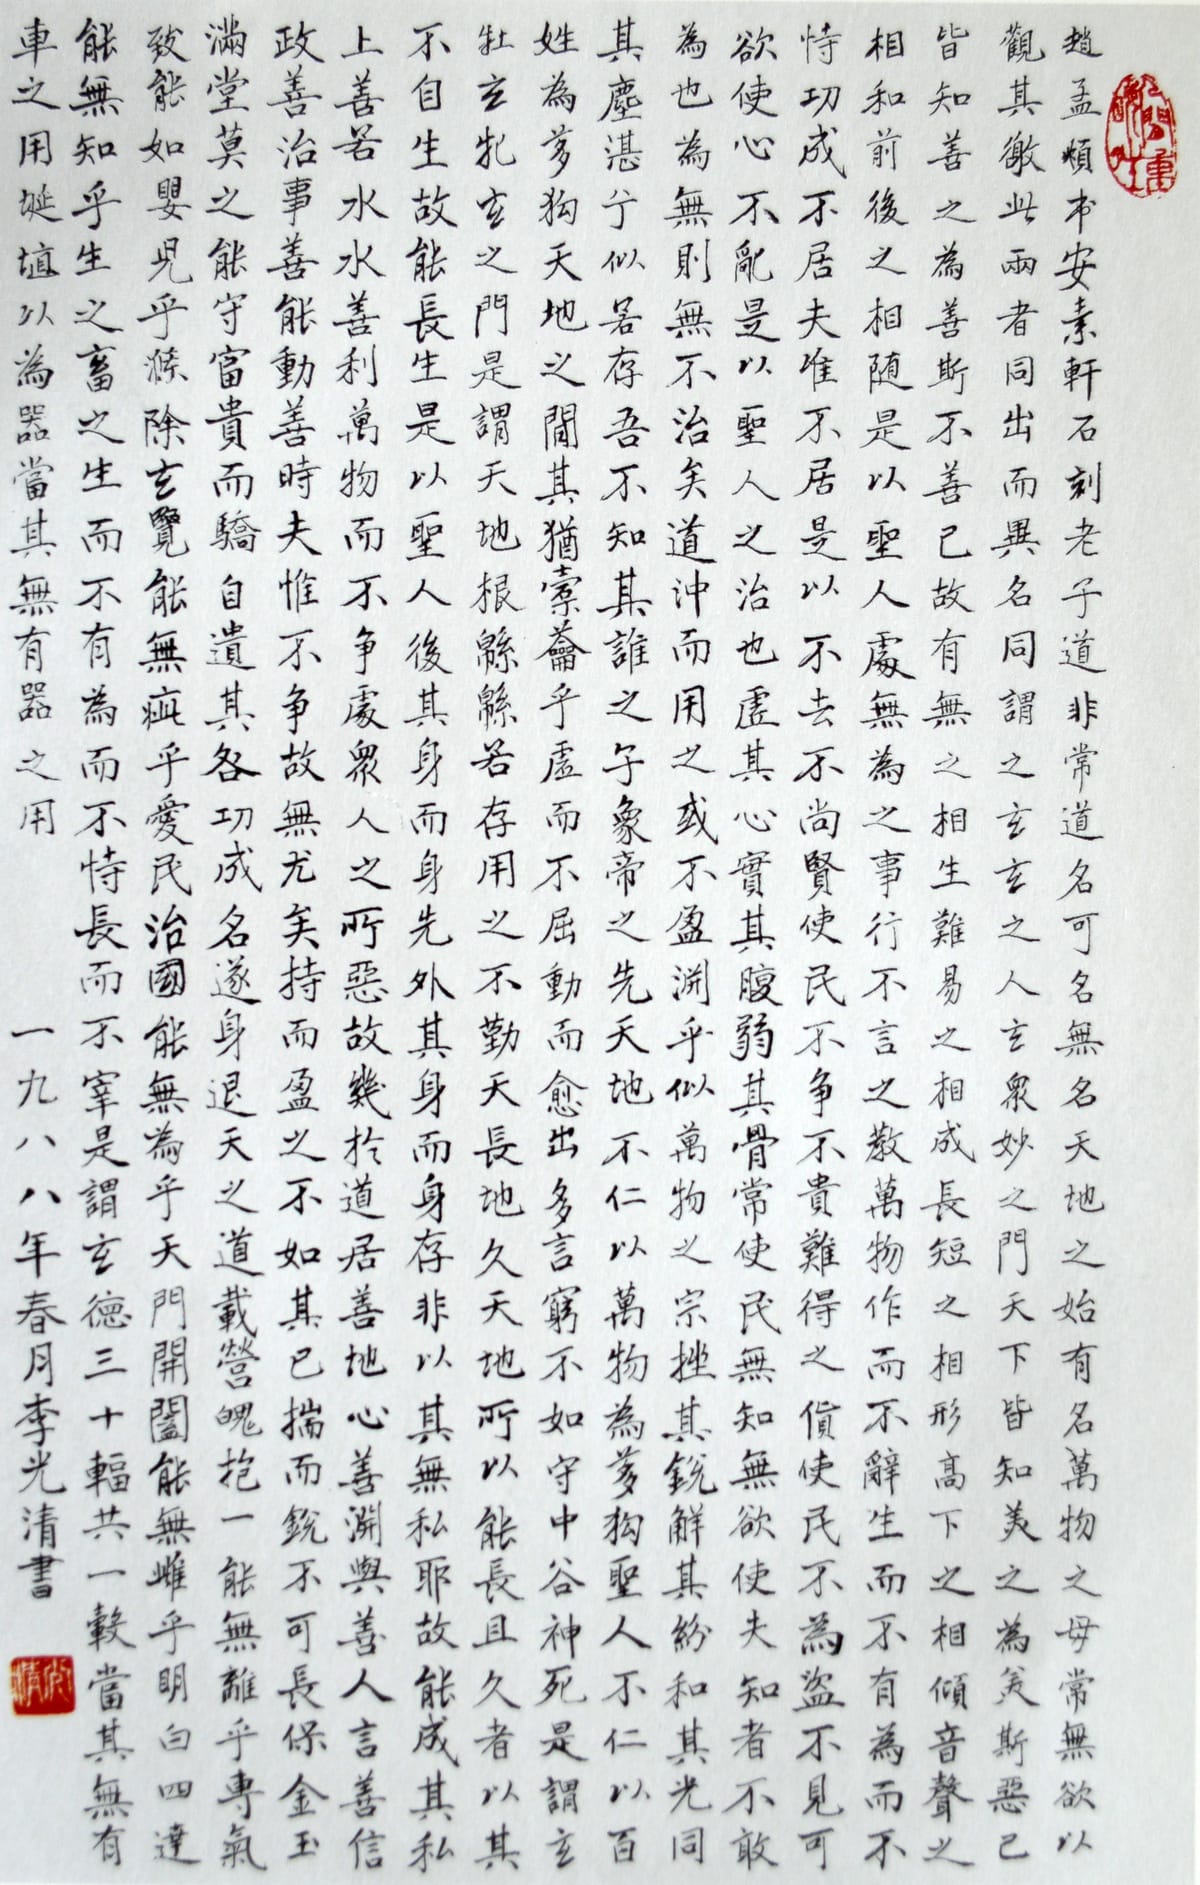 趙孟頫书安素軒石刻老子道非常道名可名無名天地之始有名萬物之母常無欲以
觀其徼此兩者同出而異名同謂之玄玄之人玄衆妙之門天下皆知美之為美斯惡已
皆知善之為善斯不善已故有無之相生難易之相成長短之相形高下之相傾音聲之
相和前後之相随是以聖人處無為之事行不言之教萬物作而不辭生而不有為而不
恃功成不居夫唯不居是以不去不尚賢使民不争不貴難得之貨使民不為盜不見可
欲使心不亂是以聖人之治也虛其心實其腹弱其骨常使民無知無欲使夫知者不敢
為也為無則無不治矣道沖而用之或不盈渊乎似萬物之宗挫其銳解其紛和其光同
其塵湛兮似若存吾不知其誰之子象帝之先天地不仁以萬物為芻狗聖人不仁以百
姓為芻狗天地之間其猶橐籥乎虛而不屈動而愈出多言窮不如守中谷神死是謂玄
牡玄牝玄之門是謂天地根緜緜若存用之不勤天長地久天地所以能長且久者以其
不自生故能長生是以聖人後其身而身先外其身而身存非以其無私耶故能成其私
上善若水水善利萬物而不争處衆人之所惡故幾於道居善地心善渊與善人言善信
政善治事善能動善時夫惟不争故無尤矣持而盈之不如其已揣而銳不可長保金玉
滿堂莫之能守富貴而驕自遺其咎功成名遂身退天之道載營魄抱一能無離乎專氣
致能如嬰児乎滌除玄覽能無疵乎愛民治國能無為乎天門開闔能無雌乎明白四達
能無知乎生之畜之生而不有為而不恃長而不宰是謂玄德三十輻共一轂當其無有
車之用埏埴以為器當其無有器之用 一九八八年春月李光清書
光清